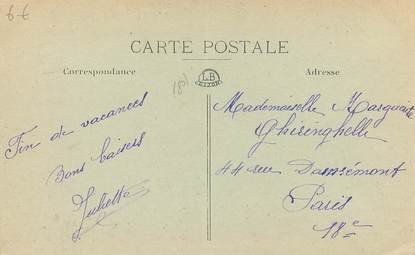 6€
CARTE POSTALE
Correspondance
Adresse
LB
DIJON
Fin de vacances
Bons baisers
Juliette
Mademoiselle Marguerite
Ghisinghelli
44 rue Damrémont
Paris
18e